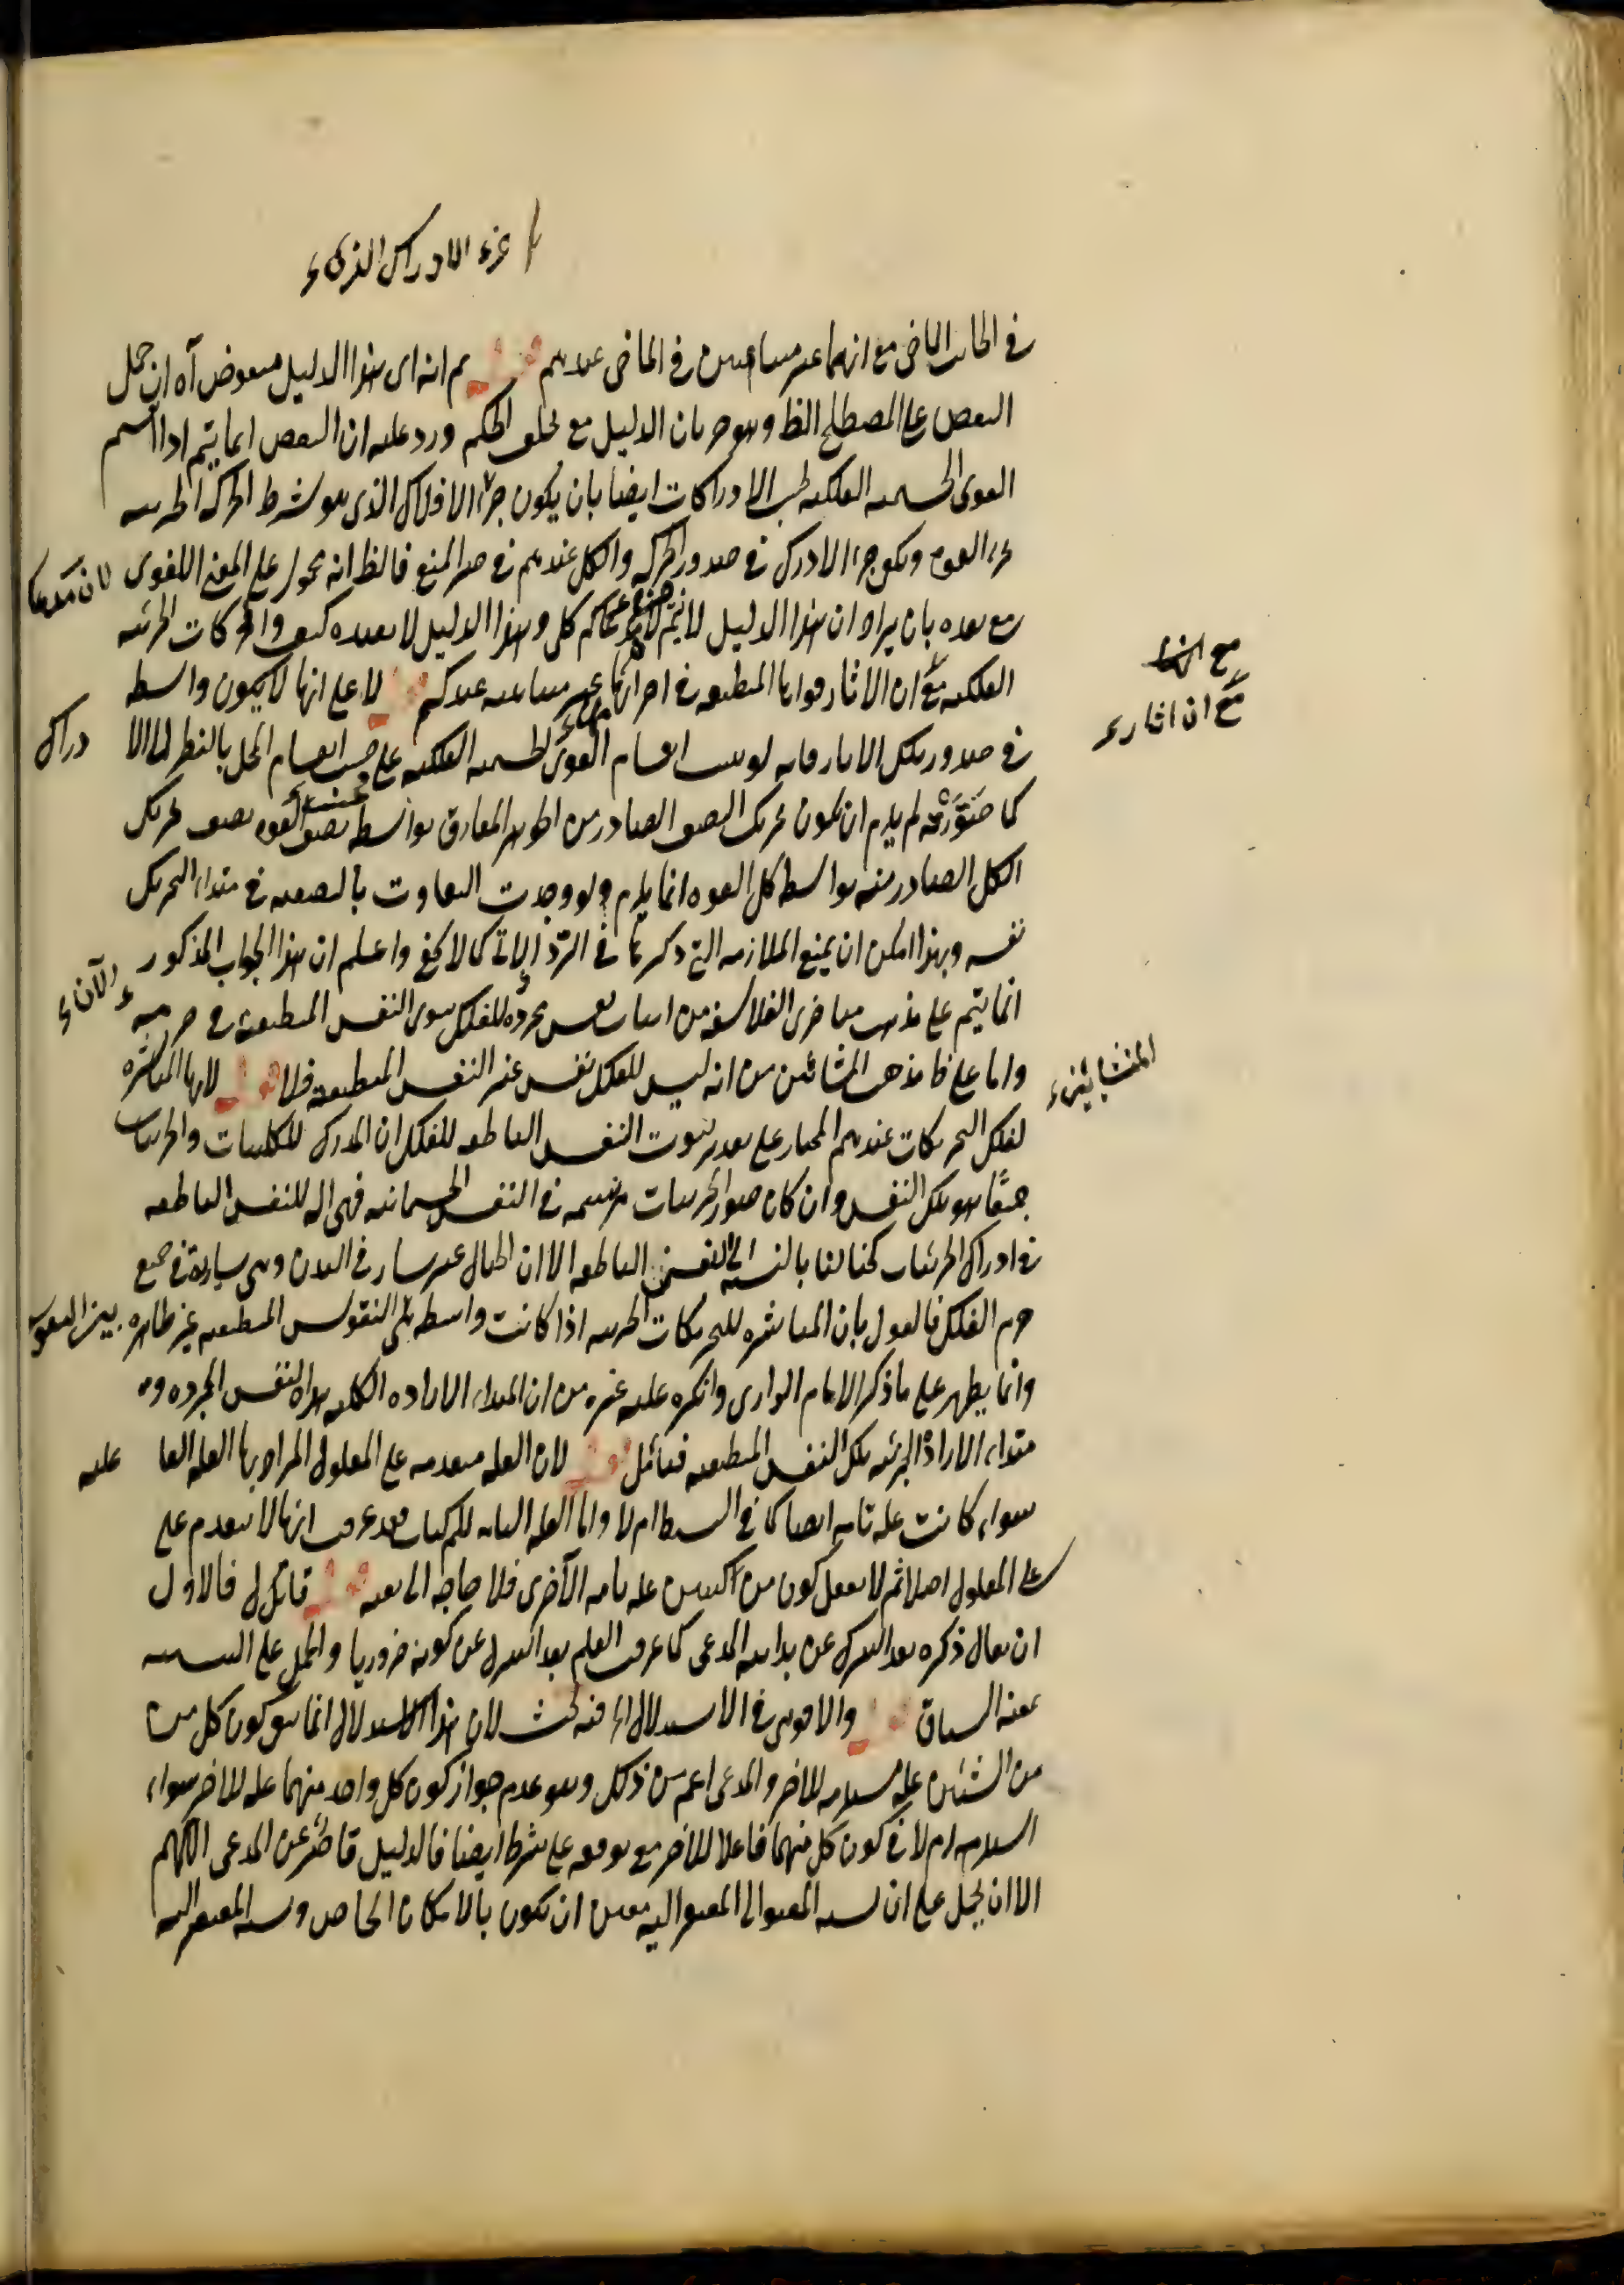 جزء الادراك الذى
فى الجانب الماضى مع انهما غير متناهيين فى الماضى عندهم قوله ثم انه اى هذا الدليل منقوض آه ان حمل
النقض على المصطلح الظ وهو جريان الدليل مع تخلف الحكم ورد عليه ان النقض انما يتم اذا انقسم
القوى الجسمية الفلكية بحسب الادراكات ايضا بان يكون جزء الافلاك الذى هو شرط الحركة الجزئية
جزء القوة ويكون جزء الادرك فى صدور الحركة والكل عندهم فى حيز المنع فالظ انه محمول على المعنى اللغوى
مع بعده بان يراد ان هذا الدليل لا يتم لان مدعاكم كلى وهذا الدليل لا يفيده كيف والحركات الجزئية
الفلكية مع ان الاثار قواها المنطبعة فى اجرامها غير متناهية عندكم قوله لا على انها لا يكون واسطة
مع ان اثار
فى صدور تلك الاثار فانه لو ثبت انقسام القوى الجسمية الفلكية على حسب انقسام المحل بالنظر الى الا دراك
كما صورته لم يلزم ان يكون تحريك النصف الصادر من الجوهر المفارق بواسطة نصف القوة نصف تحريك
الكل الصادر منه بواسطة كل القوة انما يلزم ولو وجدت التفاوت بالنصفية فى مبداء التحريك
نفسه وبهذا امكن ان يمنع الملازمة التى ذكرتها فى الترديد الاتى كما لا يخفى واعلم ان هذا الجواب المذكور
انما يتم على مذهب متاخرى الفلاسفة من اثبات نفس مجردة للفلك سوى النفس المنطبعة فى جرمه
واما على ظ مذهب المشائين من انه ليس للفلك نفس غير النفس المنطبعة فلا قوله لانها المباشرة
لفلك التحريكات عندهم المختار على تقدير ثبوت النفس الناطقة للفلك ان المدرك للكليات والجزئيات
جميعا هو تلك النفس وان كان صور الجزئيات مرتسمة فى النفس الجسمانية فهى آلة للنفس الناطقة
فى ادراك الجزئيات كخيالنا بالنسبة الى النفس الناطقة الا ان الخيال غير سار فى البدن وهى سارية فى جميع
جرم الفلك فالقول بان المباشرة للتحريكات الجزئية اذا كانت واسطة تلك النفوس المنطبعة غير ظاهره
وانما يظهر على ما ذكر الامام الرازى وانكره عليه غيره من ان المبداء الارادة الكلية هو النفس المجردة و
مبداء الارادة الجزئية تلك النفس المنطبعة فتامل قوله لان العلة متقدمة على المعلول المراد بها العلة الفا علية
سواء كانت علة تامة ايضا كما فى البسيط ام لا واما العلة التامة للمركبات فقد عرفت انها لا تتقدم على
على المعلول اصلا ثم لا يعقل كون من المركبين علة تامة الآخرى فلا حاجة الى نفيه قوله قائل فالاول
ان يقال ذكره بعد التنزل عن بداهة المدعى كما عرف العلم بعد التنزل عن كونه ضروريا والحمل على التنبيه
عنه السياق قوله والاقوى فى الاستدلال اه فيه بحث لان هذا الاستدلال انما هو كون كل من
من الشيئين علة مستلزمة للاخر والمدعى اعم من ذلك وهو عدم جواز كون كل واحد منهما علة للاخر سواء
استلزمه ام لا فى كون كل منهما فاعلا للاخر مع توقفه على شرط ايضا فالدليل قاصر عن المدعى اللهم
الا ان يحمل على ان نسبة المفتقر الى المفتقر اليه يتعين ان تكون بالامكان الخاص ونسبة المفتقر اليه